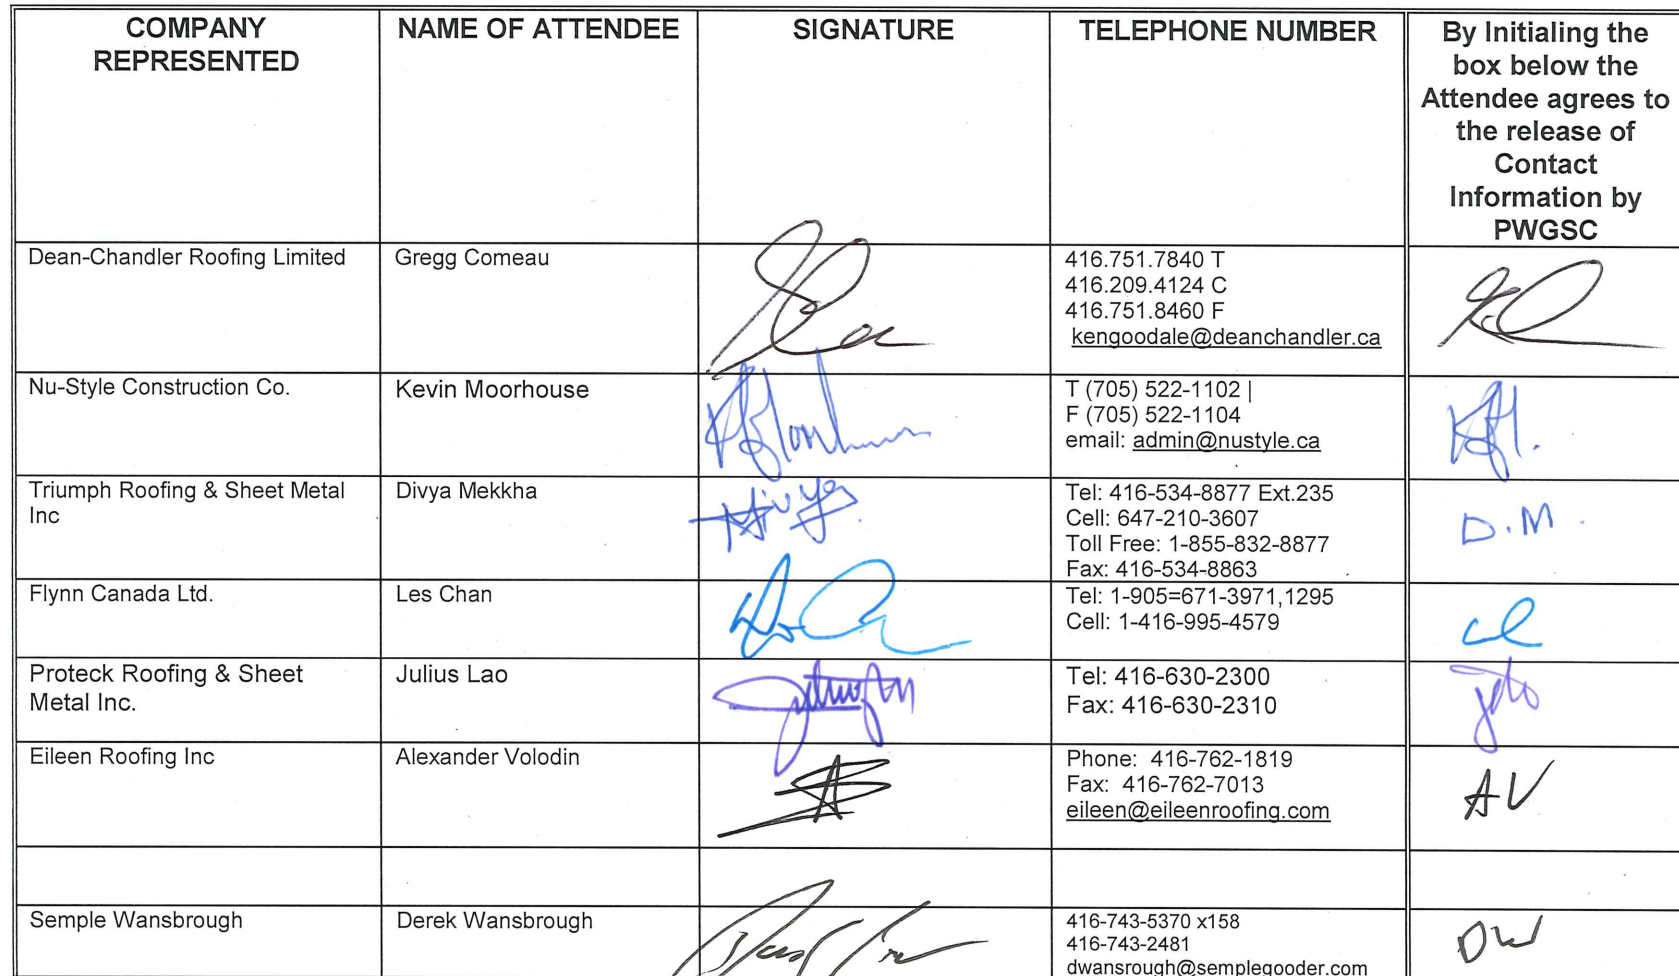 COMPANY
REPRESENTED
NAME OF ATTENDEE
SIGNATURE
TELEPHONE NUMBER
By Initialing the
box below the
Attendee agrees to
the release of
Contact
Information by
PWGSC
Dean-Chandler Roofing Limited
Gregg Comeau
416.751.7840 T
416.209.4124 C
416.751.8460 F
kengoodale@deanchandler.ca
Nu-Style Construction Co.
Kevin Moorhouse
T (705) 522-1102 |
F (705) 522-1104
email: admin@nustyle.ca
Triumph Roofing & Sheet Metal
Inc
Divya Mekkha
Divya
Tel: 416-534-8877 Ext.235
Cell: 647-210-3607
Toll Free: 1-855-832-8877
Fax: 416-534-8863
D.M.
Flynn Canada Ltd.
Les Chan
Tel: 1-905=671-3971,1295
Cell: 1-416-995-4579
Proteck Roofing & Sheet
Metal Inc.
Julius Lao
Tel: 416-630-2300
Fax: 416-630-2310
Eileen Roofing Inc
Alexander Volodin
Phone: 416-762-1819
Fax: 416-762-7013
eileen@eileenroofing.com
AV
Semple Wansbrough
Derek Wansbrough
416-743-5370 x158
416-743-2481
dwansrough@semplegooder.com
DW